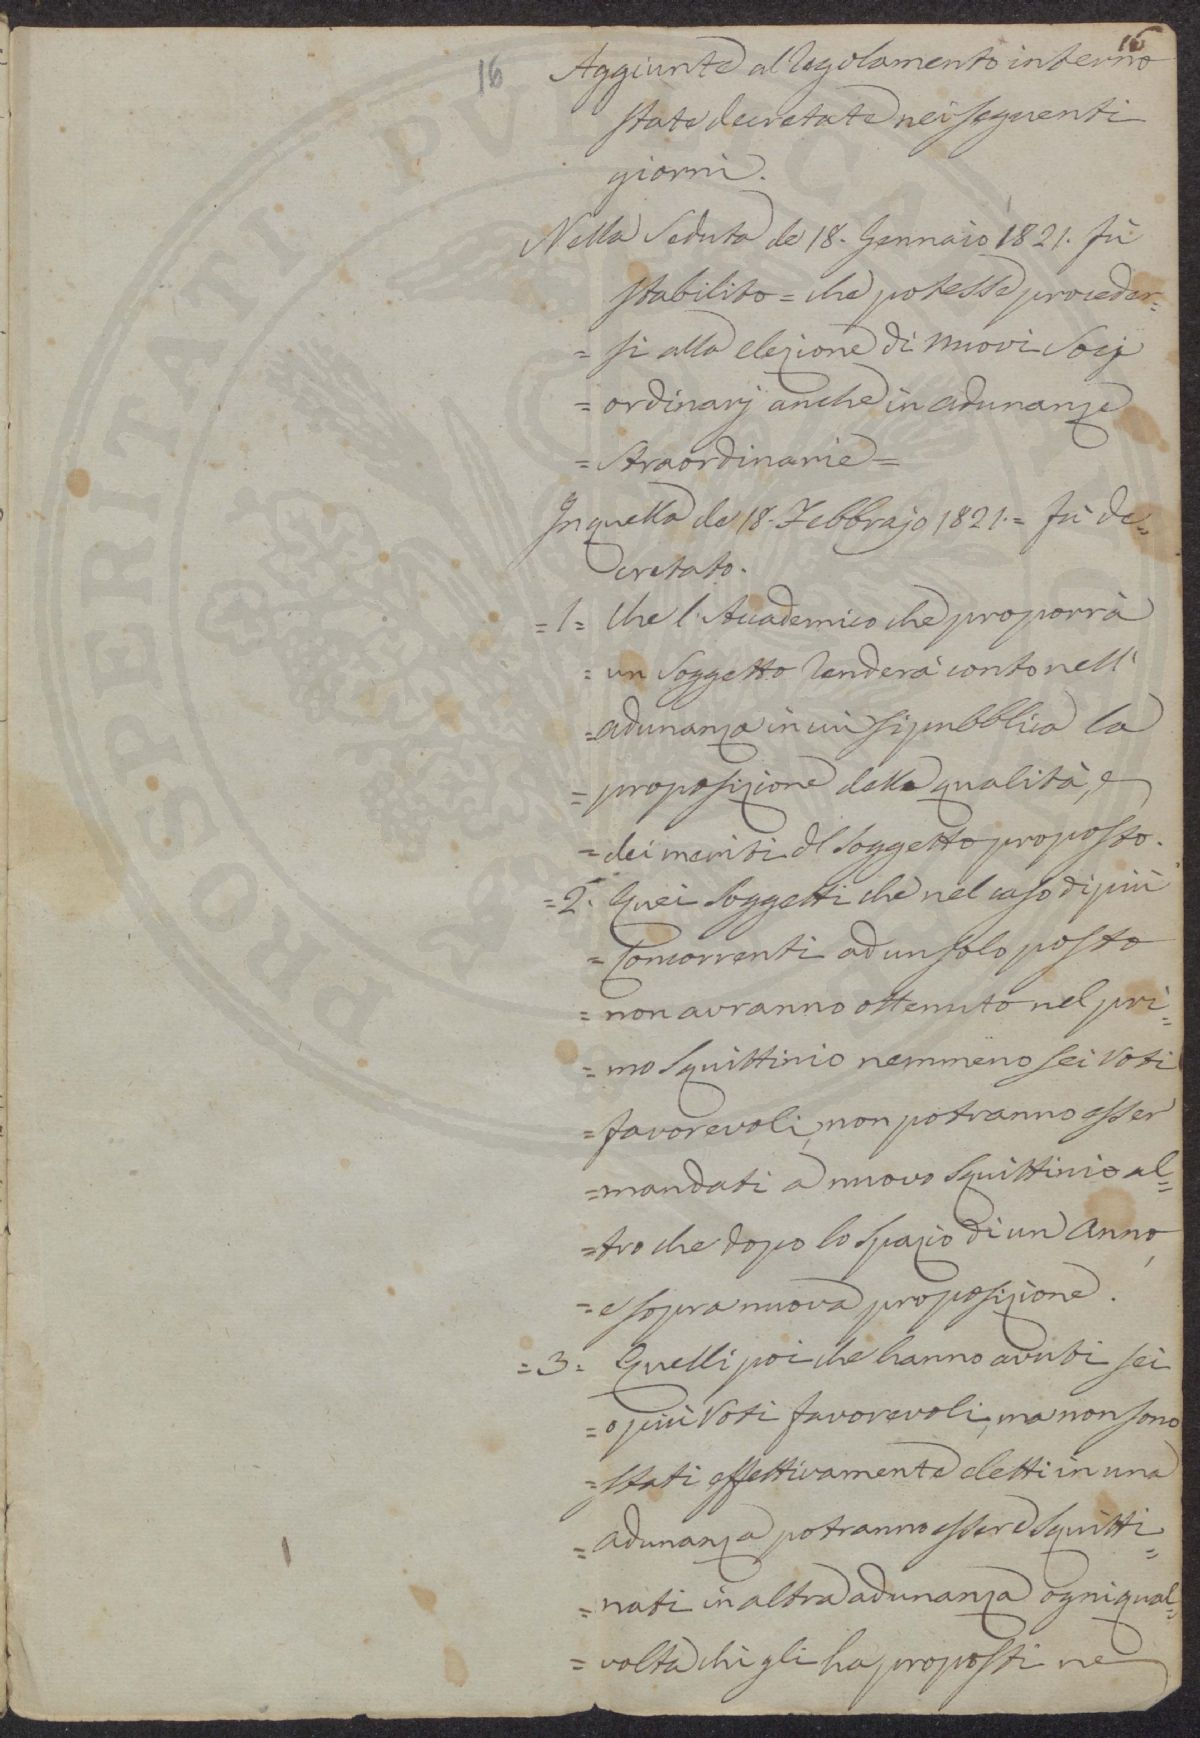 16
16
Aggiunte al Regolamento interno
state decretate nei seguenti
giorni.
Nella Seduta de 18. Gennaio 1821. fù
stabilito = che potesse proceder=
= si alla elezione di nuovi Socj
= ordinarj anche in adunanze
= straordinarie =
In quella de 18. Febbrajo 1821. = fù de=
cretato.
=1= Che l'Accademico che proporrà
= un Soggetto renderà conto nell'
= adunanza in cui si pubblica la
= proposizione della qualità, e
= dei meriti del Soggetto proposto.
=2. Quei Soggetti che nel caso di più
= Concorrenti ad un solo posto
= non avranno ottenuto nel pri=
= mo Squittinio nemmeno sei Voti
= favorevoli, non potranno esser
= mandati a nuovo Squittinio al=
= tro che dopo lo spazio di un Anno,
= e sopra nuova proposizione.
=3= Quelli poi che hanno avuti sei
= o più Voti favorevoli, ma non sono
= stati effettivamente eletti in una
= adunanza potranno essere Squitti=
= nati in altra adunanza ogni qual=
= volta chi gli ha proposti ne
PROSPERITATI PVBLICAE